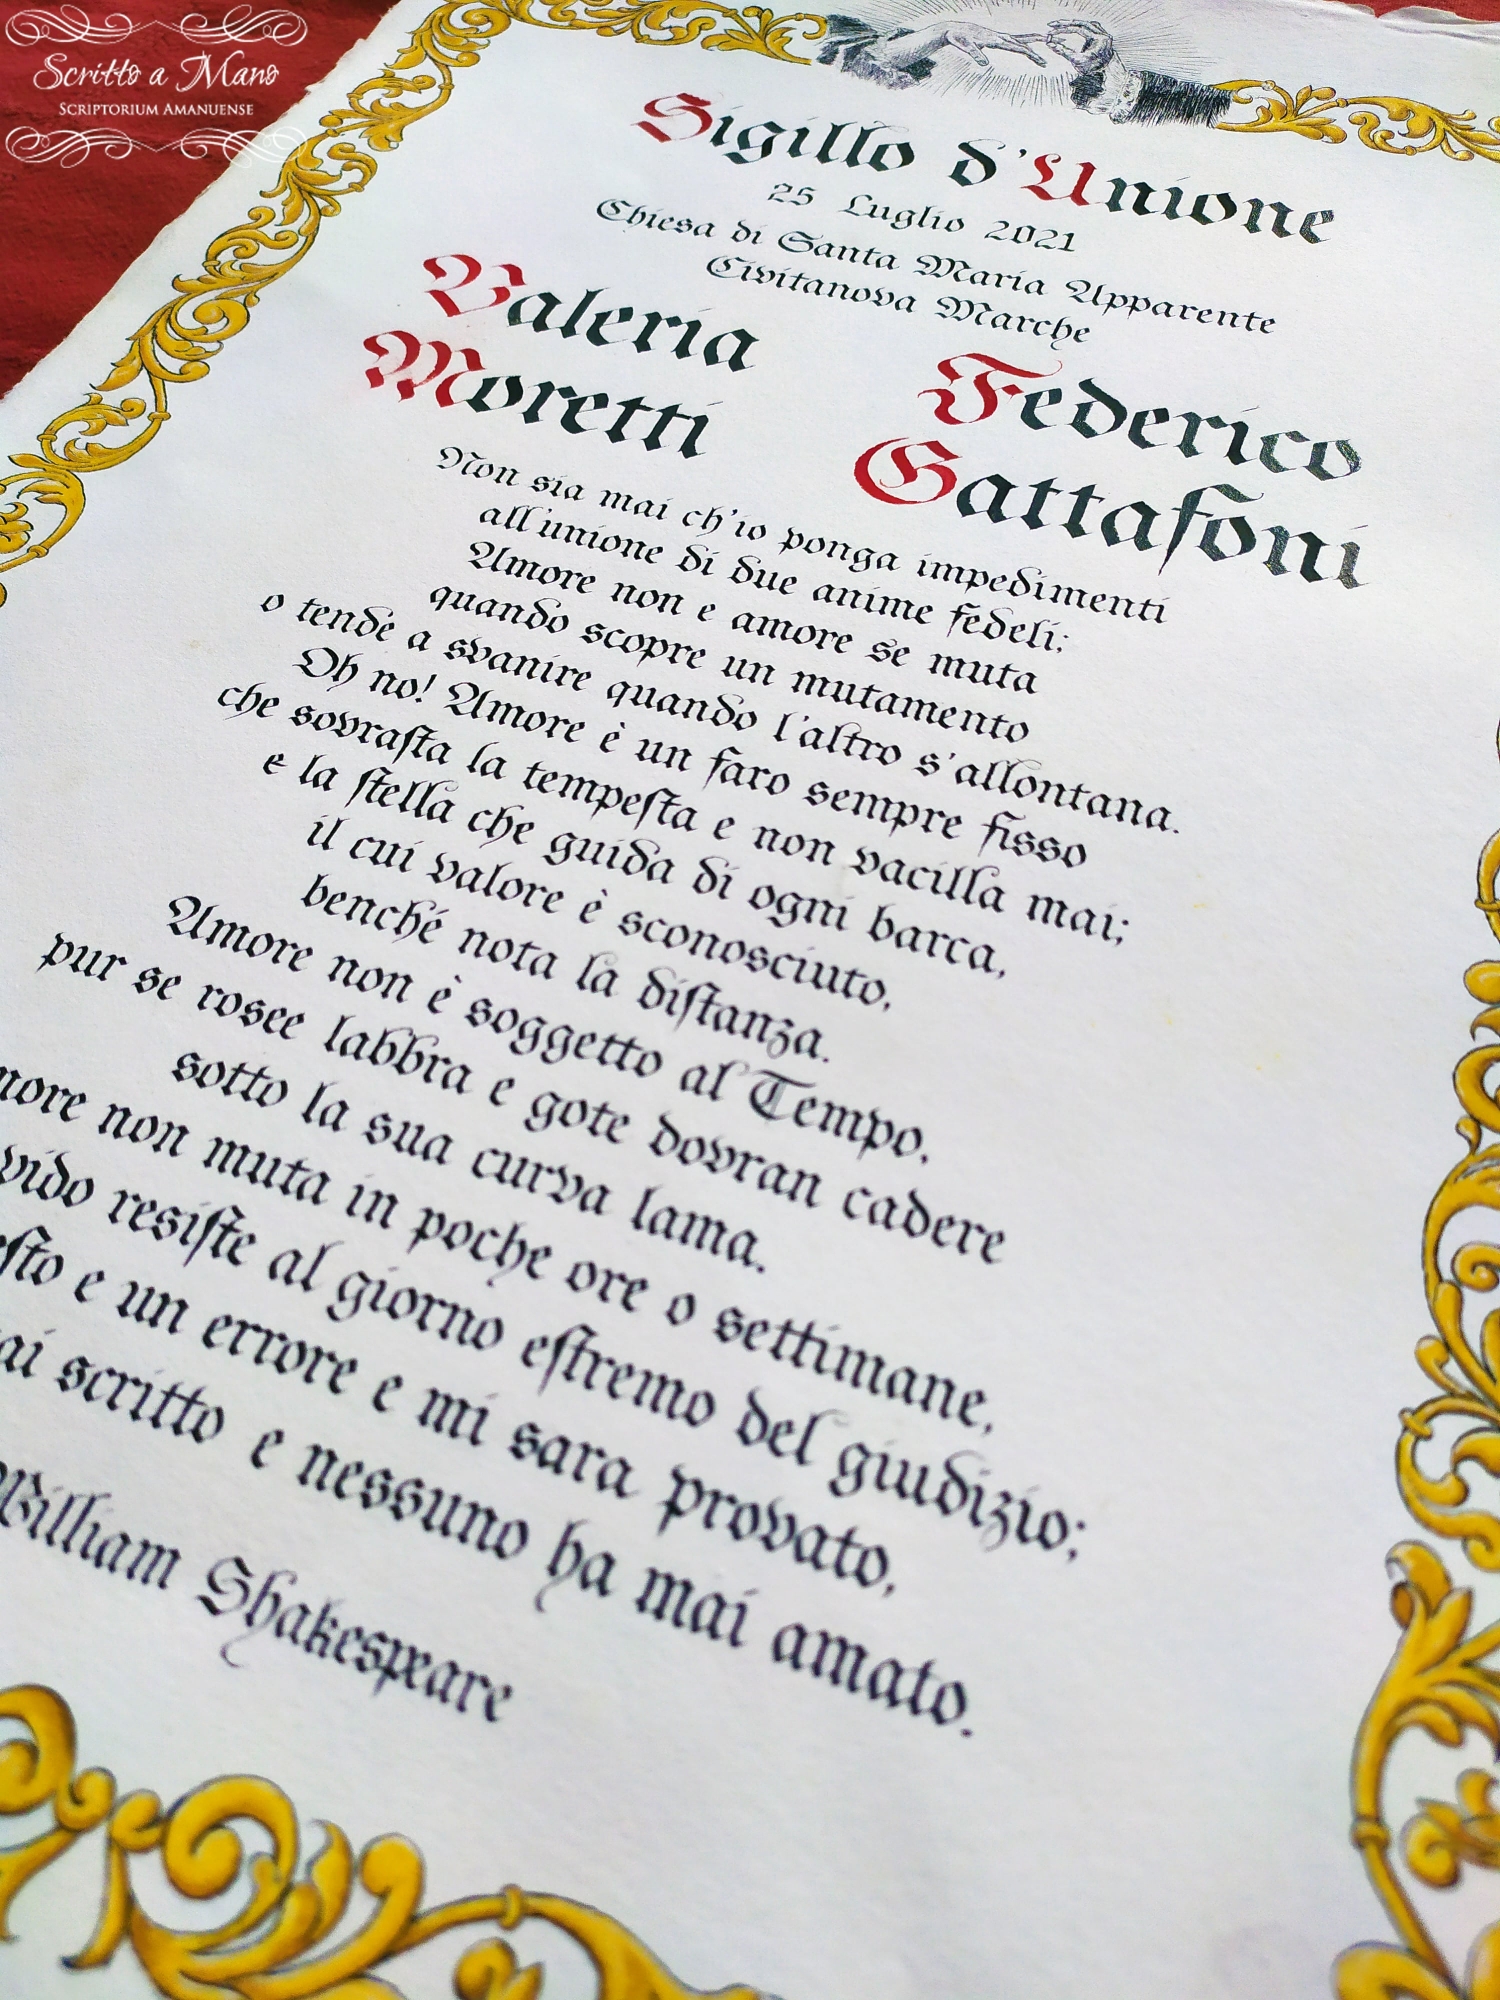 Scritto a Mano
SCRIPTORIUM AMANUENSE
Sigillo d'Unione
25 Luglio 2021
Chiesa di Santa Maria Apparente
Civitanova Marche
Valeria
Moretti
Federico
Gattafoni
Non sia mai ch'io ponga impedimenti
all'unione di due anime fedeli;
Amore non e amore se muta
quando scopre un mutamento
o tende a svanire quando l'altro s'allontana.
Oh no! Amore è un faro sempre fisso
che sovrasta la tempesta e non vacilla mai;
e la stella che guida di ogni barca,
il cui valore è sconosciuto,
benché nota la distanza.
Amore non è soggetto al Tempo,
pur se rosee labbra e gote dovran cadere
sotto la sua curva lama.
more non muta in poche ore o settimane,
vido resiste al giorno estremo del giudizio;
esto e un errore e mi sara provato,
ai scritto e nessuno ha mai amato.
William Shakespeare